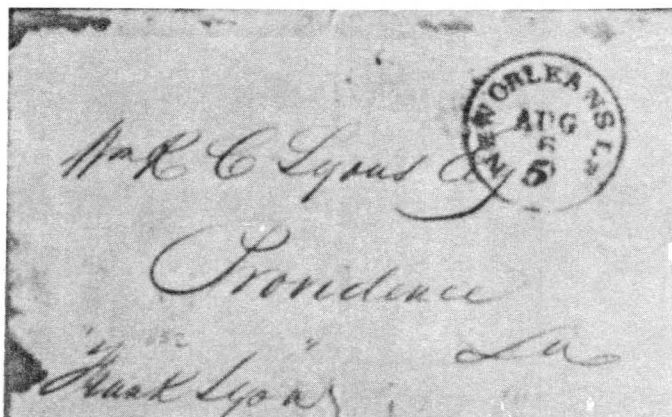 NEW ORLEANS La
AUG
5
5
C Lyons Esq
Providence
La
"Frank Lyons"